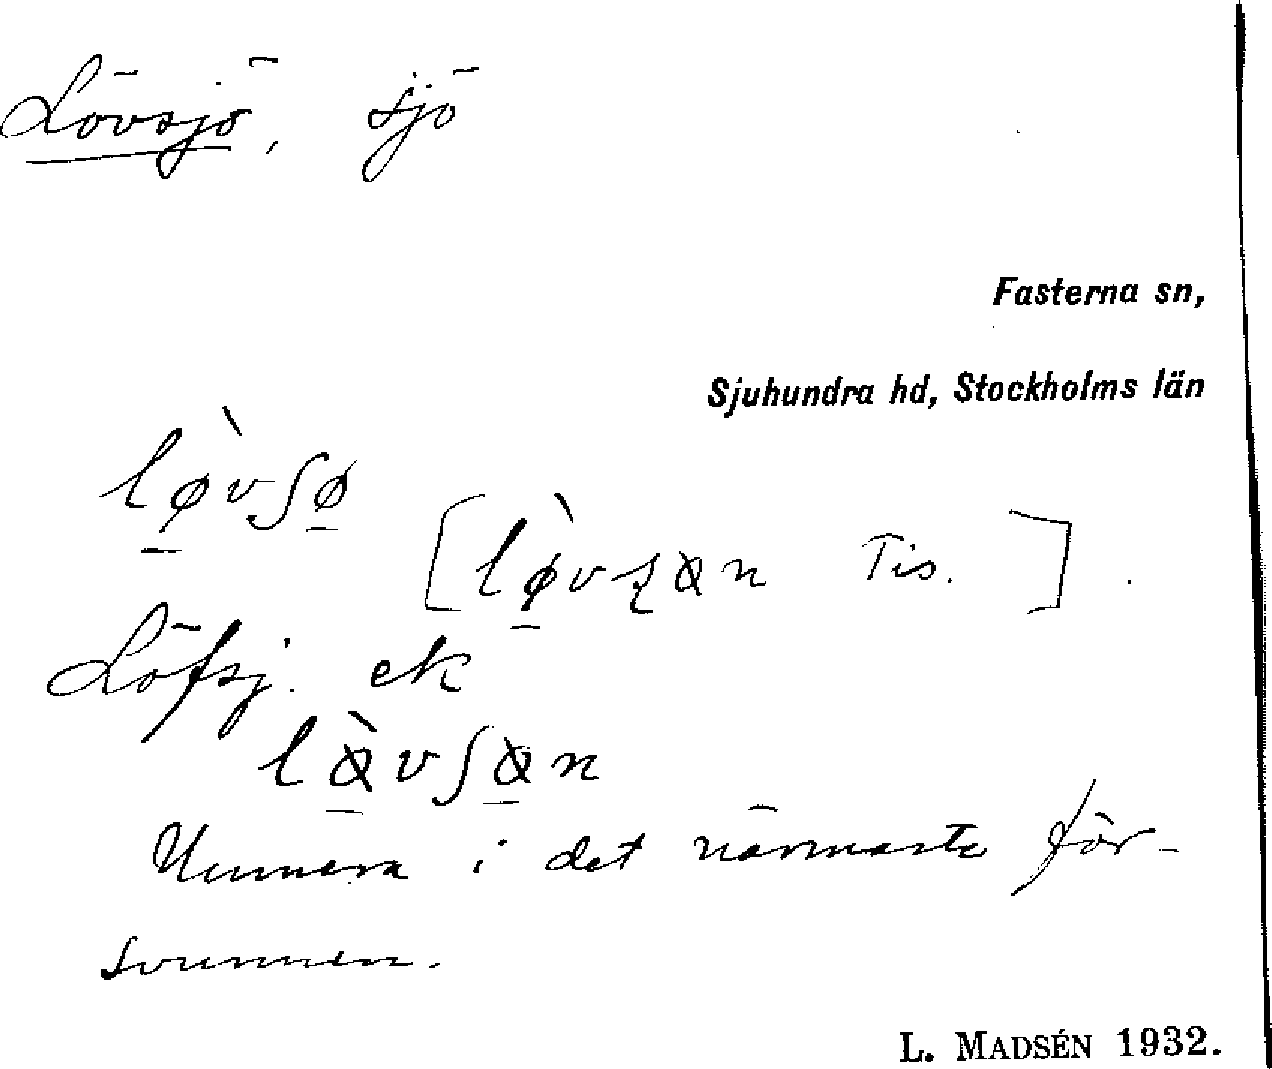 Lövsjö, sjö
Fasterna sn,
Sjuhundra hd, Stockholms län
lø̱̀vʃø̱
[lø̱̀v Tis.].
Löfsj. ek
Numera i det närmaste för-
svunnen.
L. MADSÉN 1932.